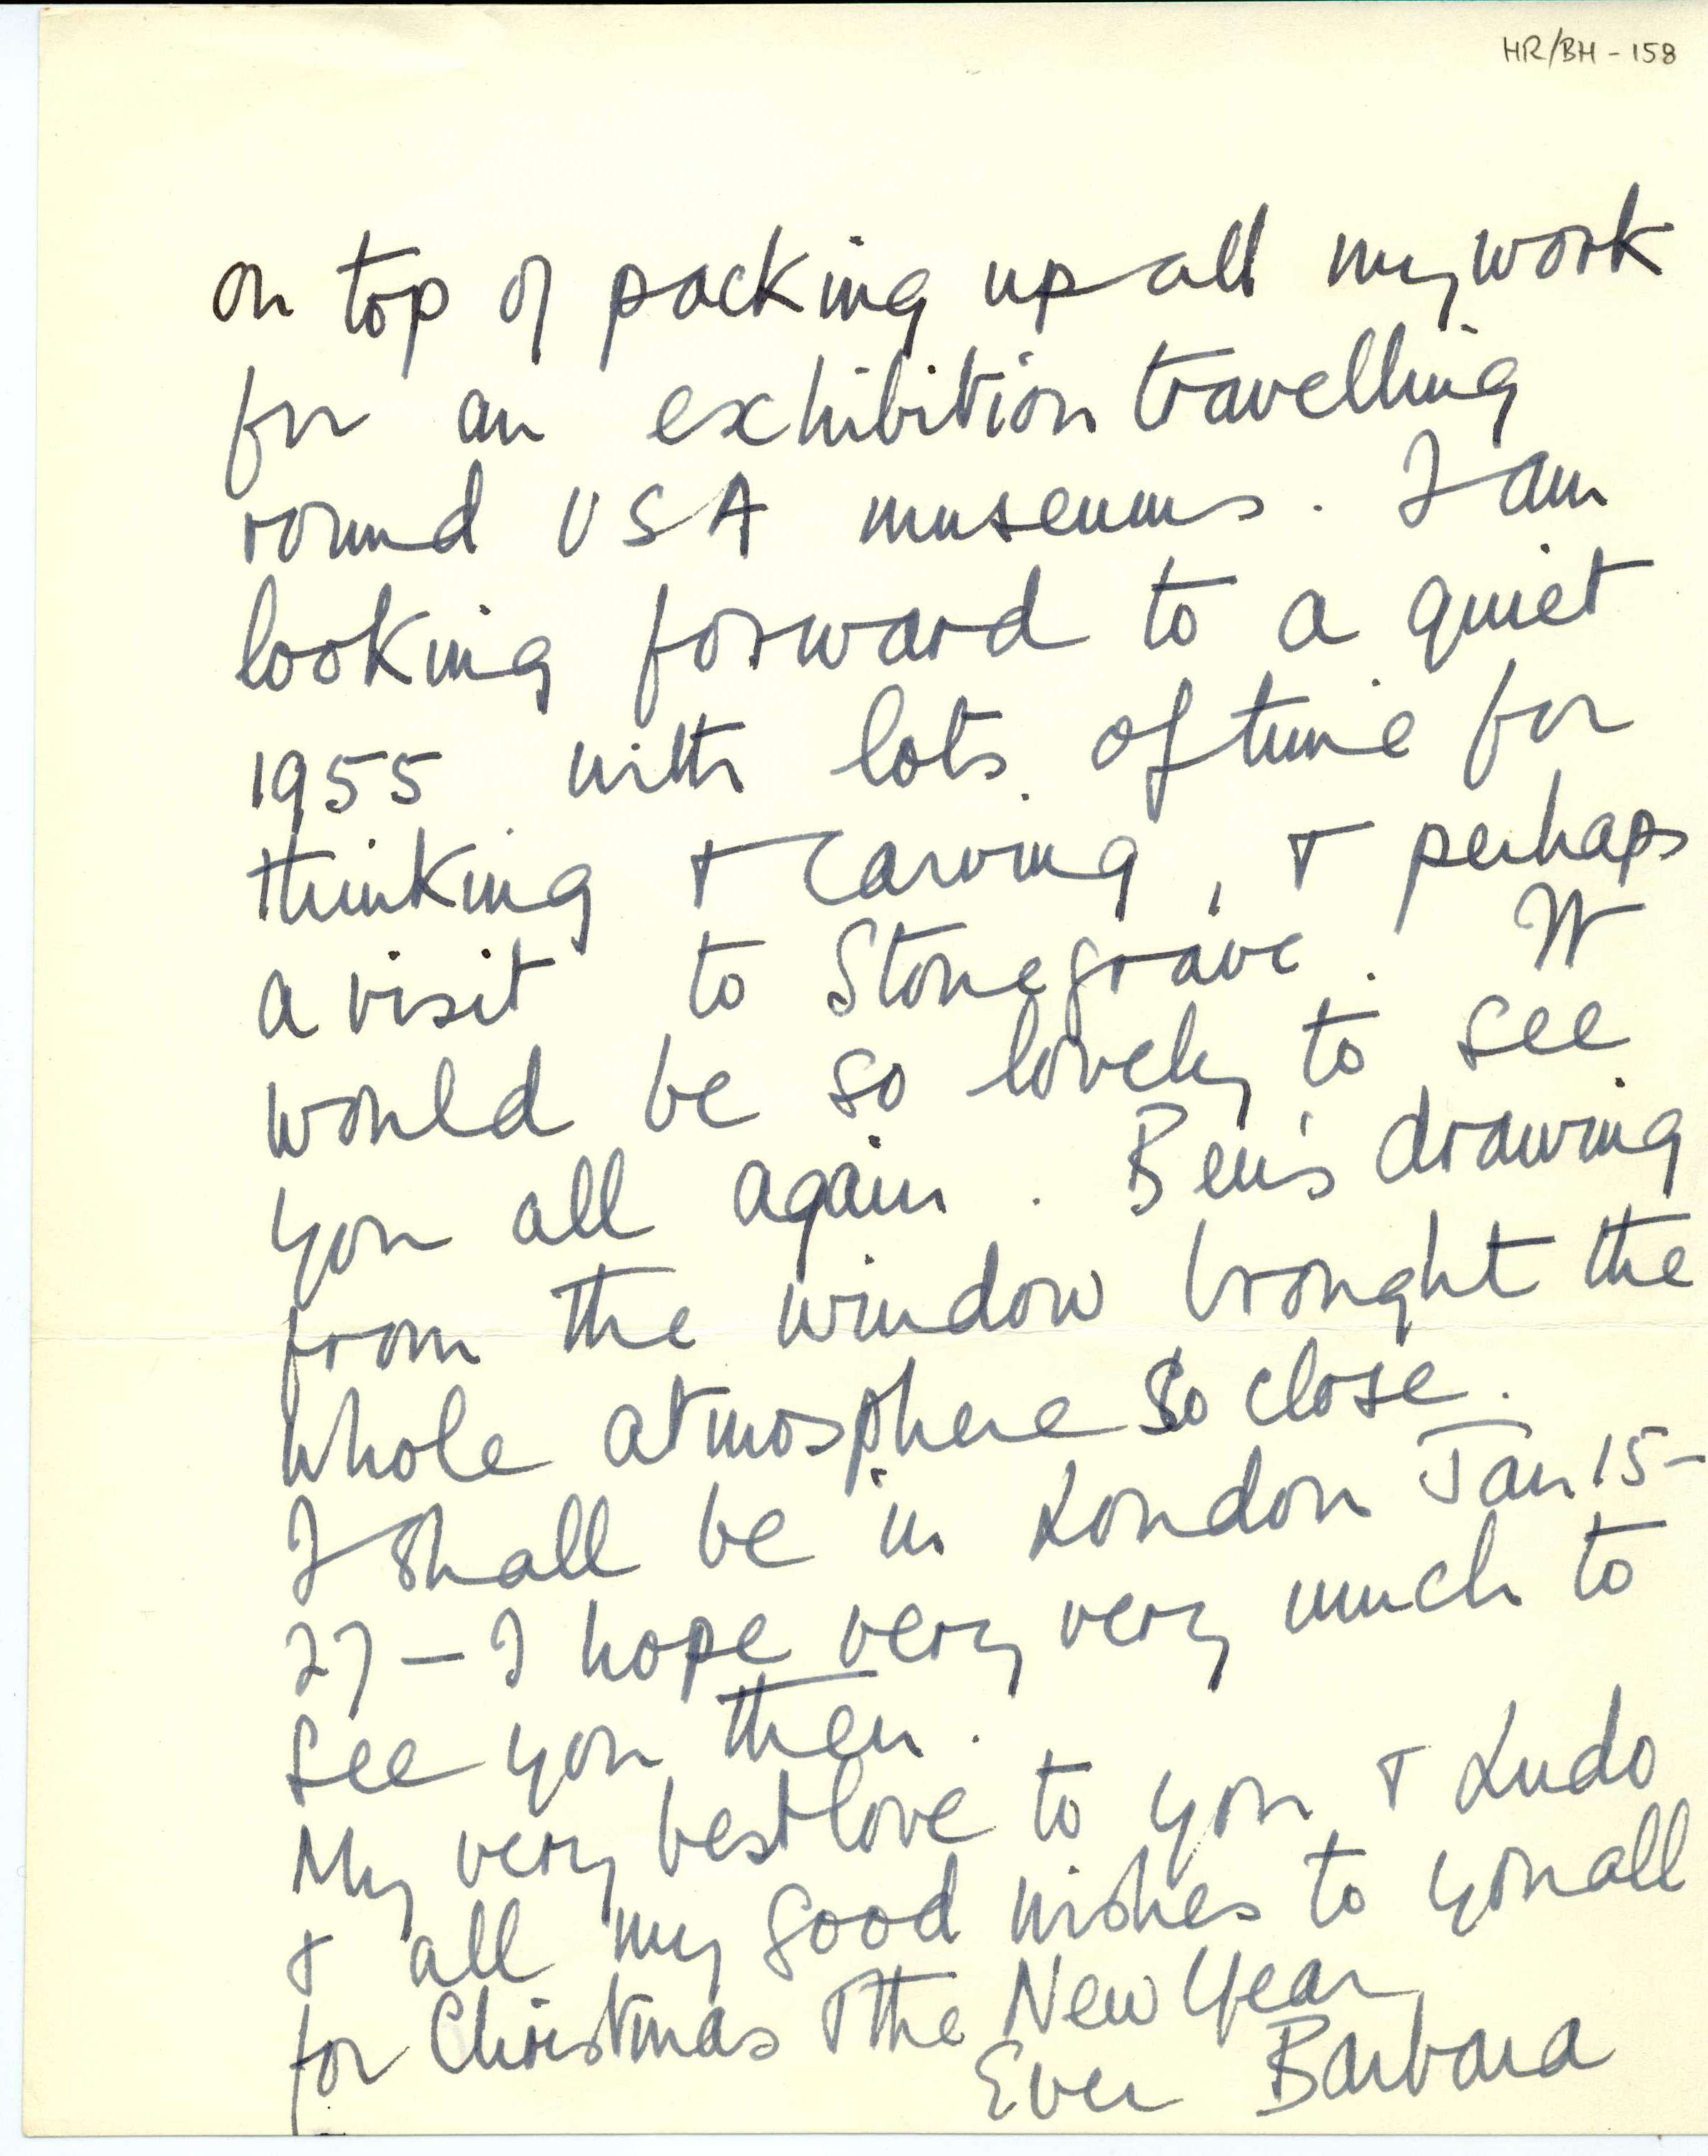 HR/BH - 158
on top of packing up all my work
for an exhibition travelling
round USA museums. I am
looking forward to a quiet
1955 with lots of time for
thinking & carving, & perhaps
a visit to Stonegrave. It
would be so lovely to see
you all again. Ben's drawing
from the window brought the
whole atmosphere so close.
I shall be in London Jan 15-
27 — I hope very very much to
see you then.
My very best love to you & Ludo
& all my good wishes to you all
for Christmas & the New Year
Ever Barbara